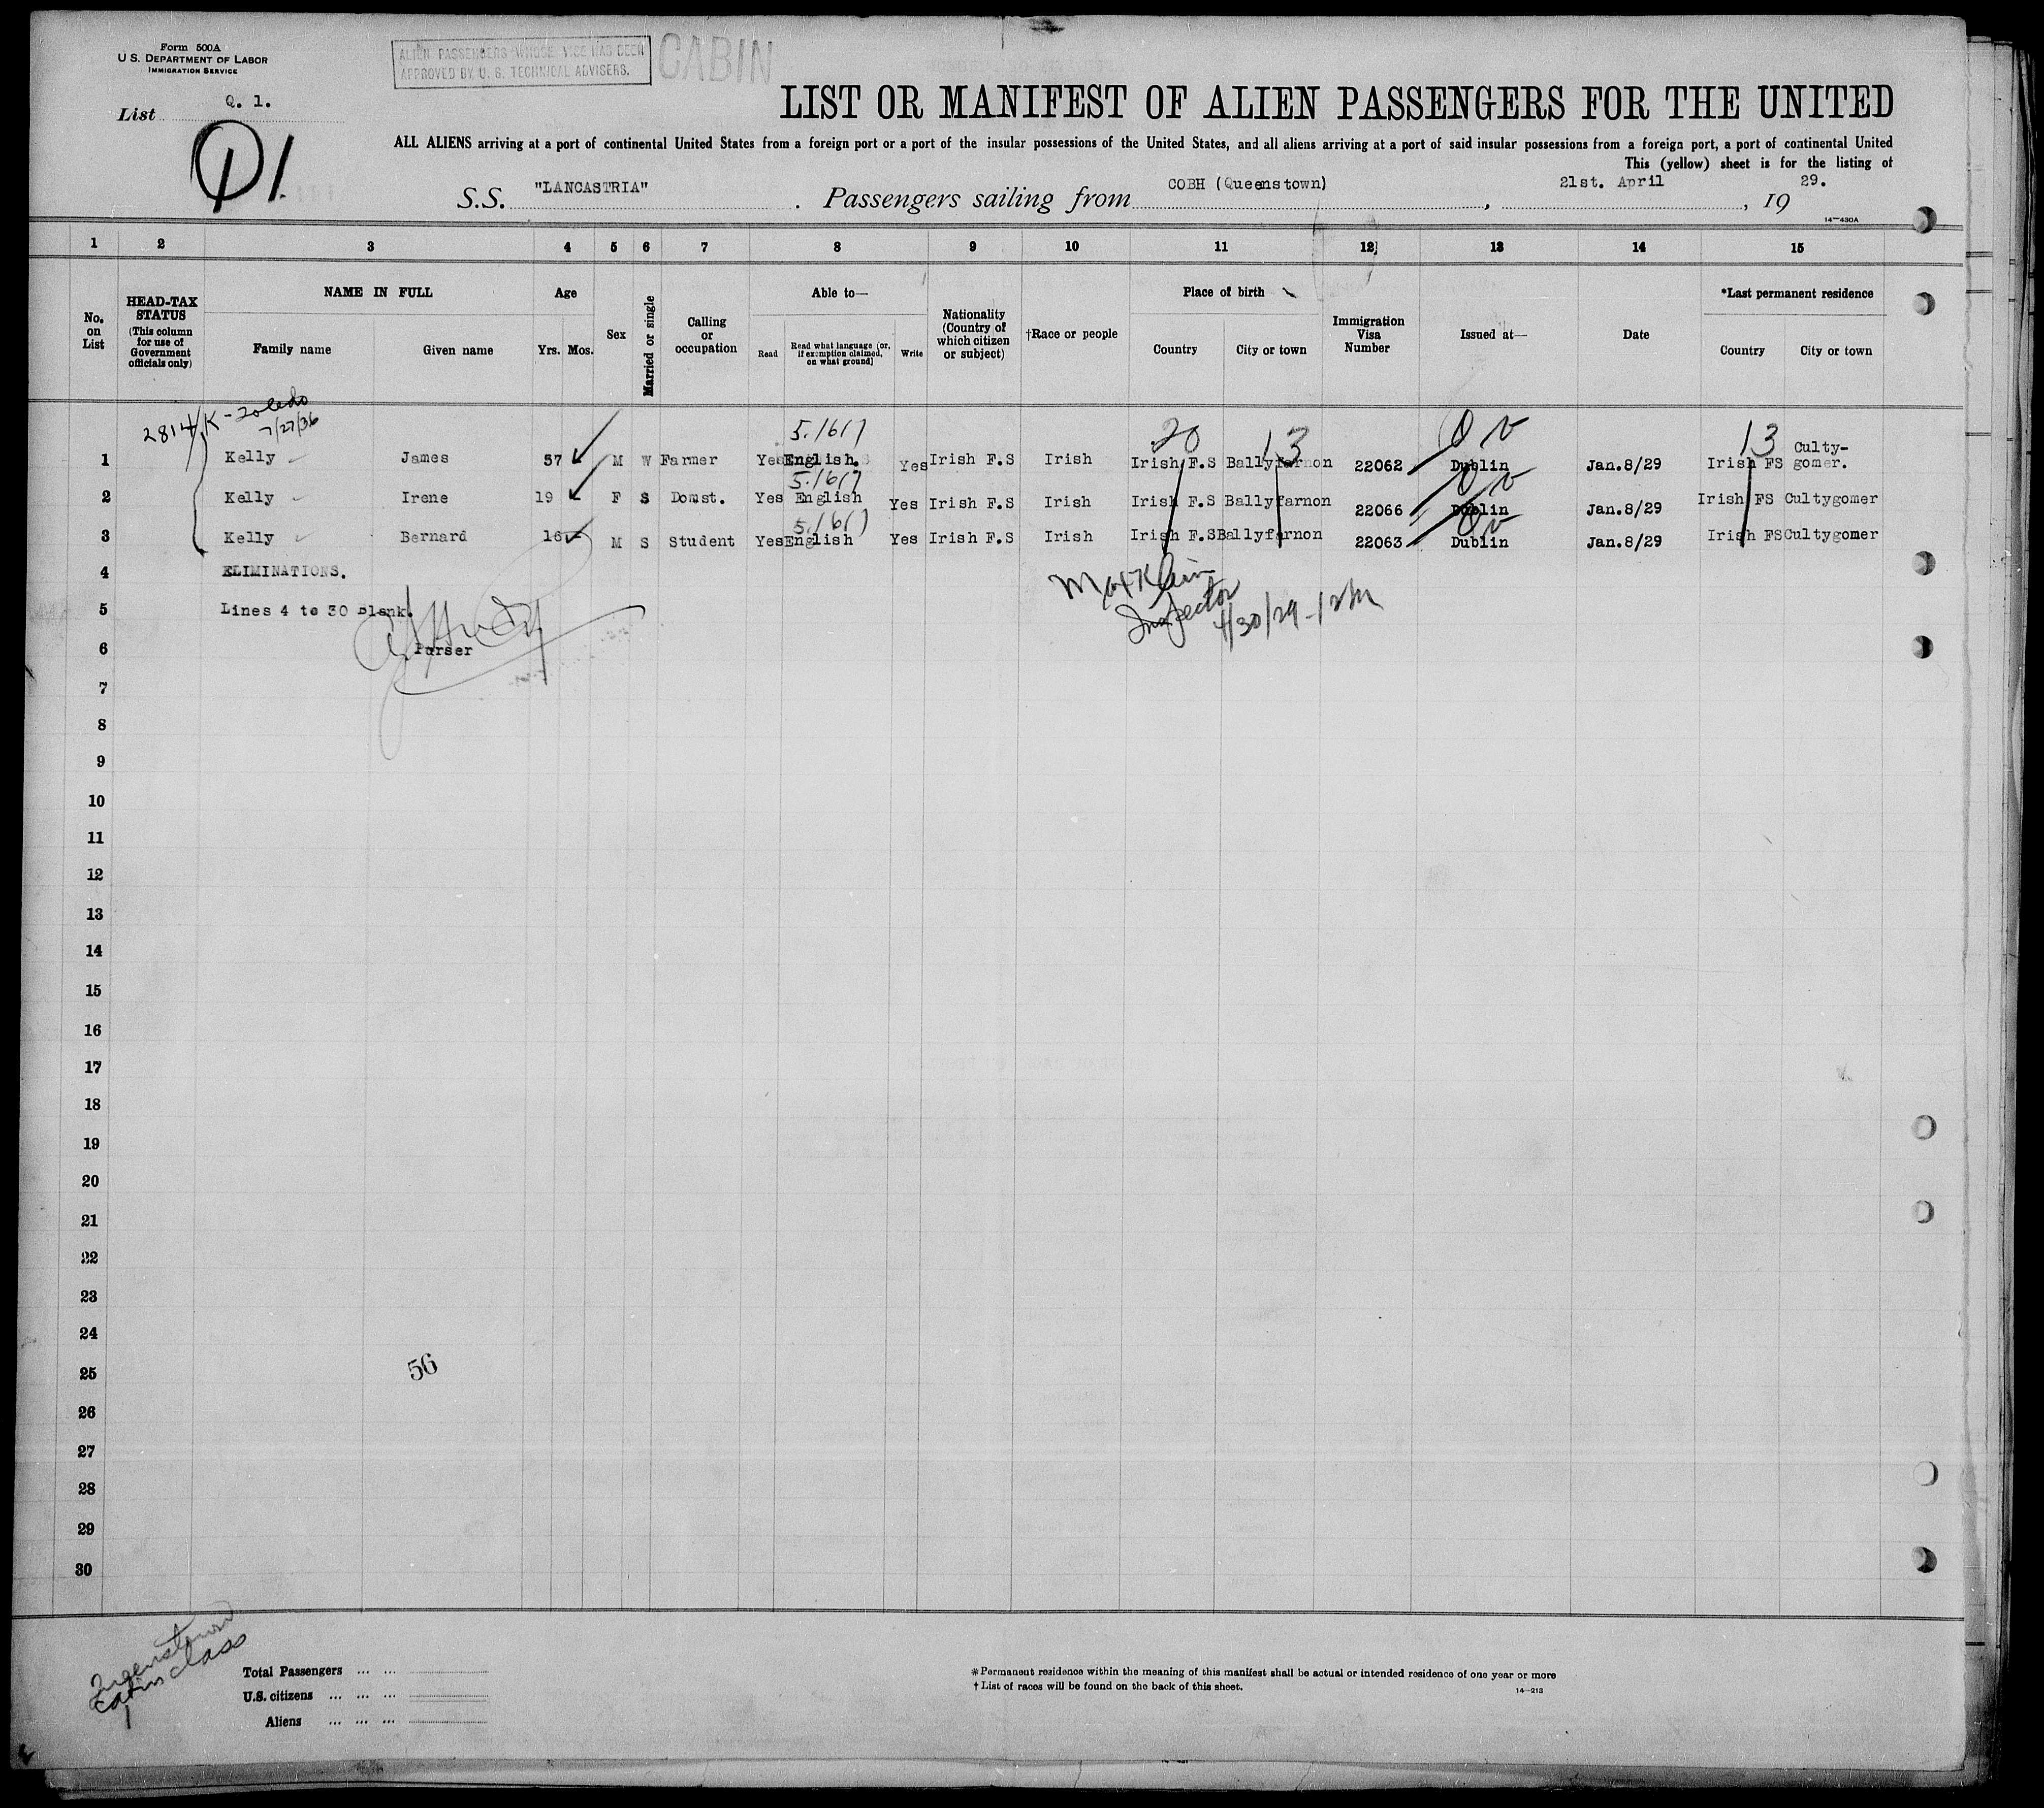 Form 500A
U. S. DEPARTMENT OF LABOR
IMMIGRATION SERVICE
ALIEN PASSENGERS WHOSE VISE HAS BEEN
APPROVED BY U. S. TECHNICAL ADVISERS.
CABIN
List Q. 1.
Q1
LIST OR MANIFEST OF ALIEN PASSENGERS FOR THE UNITED
ALL ALIENS arriving at a port of continental United States from a foreign port or a port of the insular possessions of the United States, and all aliens arriving at a port of said insular possessions from a foreign port, a port of continental United
This (yellow) sheet is for the listing of
S.S. "LANCASTRIA" . Passengers sailing from COBH (Queenstown) , 21st. April , 19 29.
14—430A
1 2 3 4 5 6 7 8 9 10 11 12 13 14 15
No. on List
HEAD-TAX STATUS (This column for use of Government officials only)
NAME IN FULL
Family name Given name
Age
Yrs. Mos.
Sex
Married or single
Calling or occupation
Able to—
Read Read what language (or, if exemption claimed, on what ground) Write
Nationality (Country of which citizen or subject)
†Race or people
Place of birth
Country City or town
Immigration Visa Number
Issued at—
Date
*Last permanent residence
Country City or town
2814 K-Toledo
7/27/36
5.16(7 20 13 13
1 Kelly James 57 M W Farmer Yes English. Yes Irish F.S Irish Irish F.S Ballyfarnon 22062 Dublin Jan.8/29 Irish FS Culty-gomer.
5.16(7
2 Kelly Irene 19 F S Domst. Yes English Yes Irish F.S Irish Irish F.S Ballyfarnon 22066 Dublin Jan.8/29 Irish FS Cultygomer
5.16(7
3 Kelly Bernard 16 M S Student Yes English Yes Irish F.S Irish Irish F.S Ballyfarnon 22063 Dublin Jan.8/29 Irish FS Cultygomer
4 ELIMINATIONS.
5 Lines 4 to 30 blank.
Inspector
4/30/29
6 Purser
7
8
9
10
11
12
13
14
15
16
17
18
19
20
21
22
23
24
25
56
26
27
28
29
30
Queenstown
Cabin Class
1
Total Passengers ... ...
U.S. citizens ... ... ...
Aliens ... ... ...
*Permanent residence within the meaning of this manifest shall be actual or intended residence of one year or more
† List of races will be found on the back of this sheet.
14—213